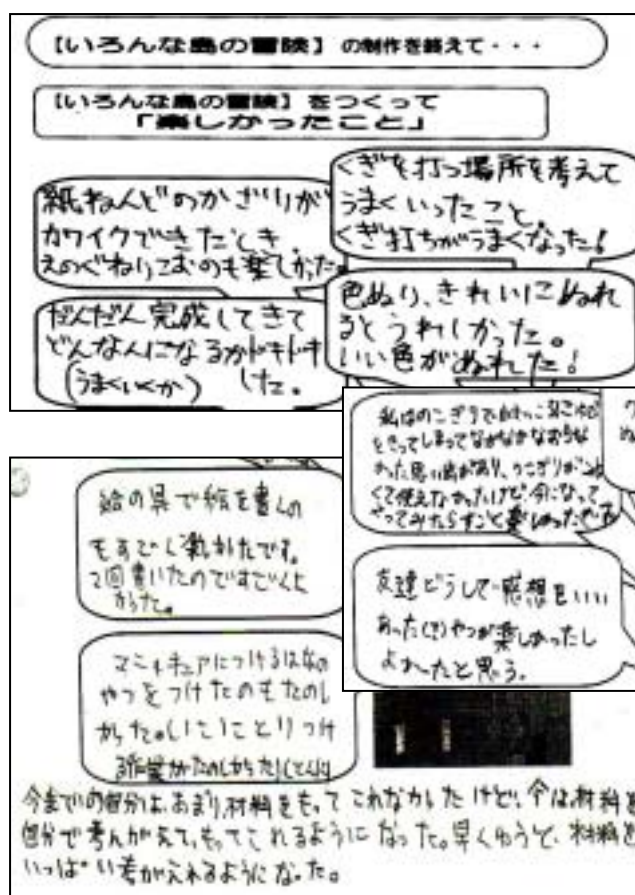 【いろんな島の冒険】の制作を終えて・・・
【いろんな島の冒険】をつくって
「楽しかったこと」
紙ねんどのかざりが
カワイクできたとき、
えのぐねりこむのも楽しかった。
くぎを打つ場所を考えて
うまくいったこと。
くぎ打ちがうまくなった!
だんだん完成してきて
どんなんになるかドキドキ
(うまくいくか) した。
色ぬり、きれいにぬれ
るとうれしかった。
いい色がぬれした!
私はのこぎりで
きってしまってなかなかなおらな
かった思い出があり、のこぎりが
くて使えなかったけど、今になって
やってみたらすごく楽しかったです
友達どうしで感想をいい
あった(き)やつが楽しかったし
よかったと思う。
絵の具で絵を書くの
もすごく楽しかったです。
2回書いたのですごくよ
かった。
マニキュアにつけるはなの
やつをつけたのもたのし
かった。(1こ1ことりつけ
る作業がたのしかった)
今までの自分は、あまり材料をもってこれなかったけど、今は材料を
自分で考んがえて、もってこれるようになった。早くゆうと、材料を
いっぱい考がえれるようになった。